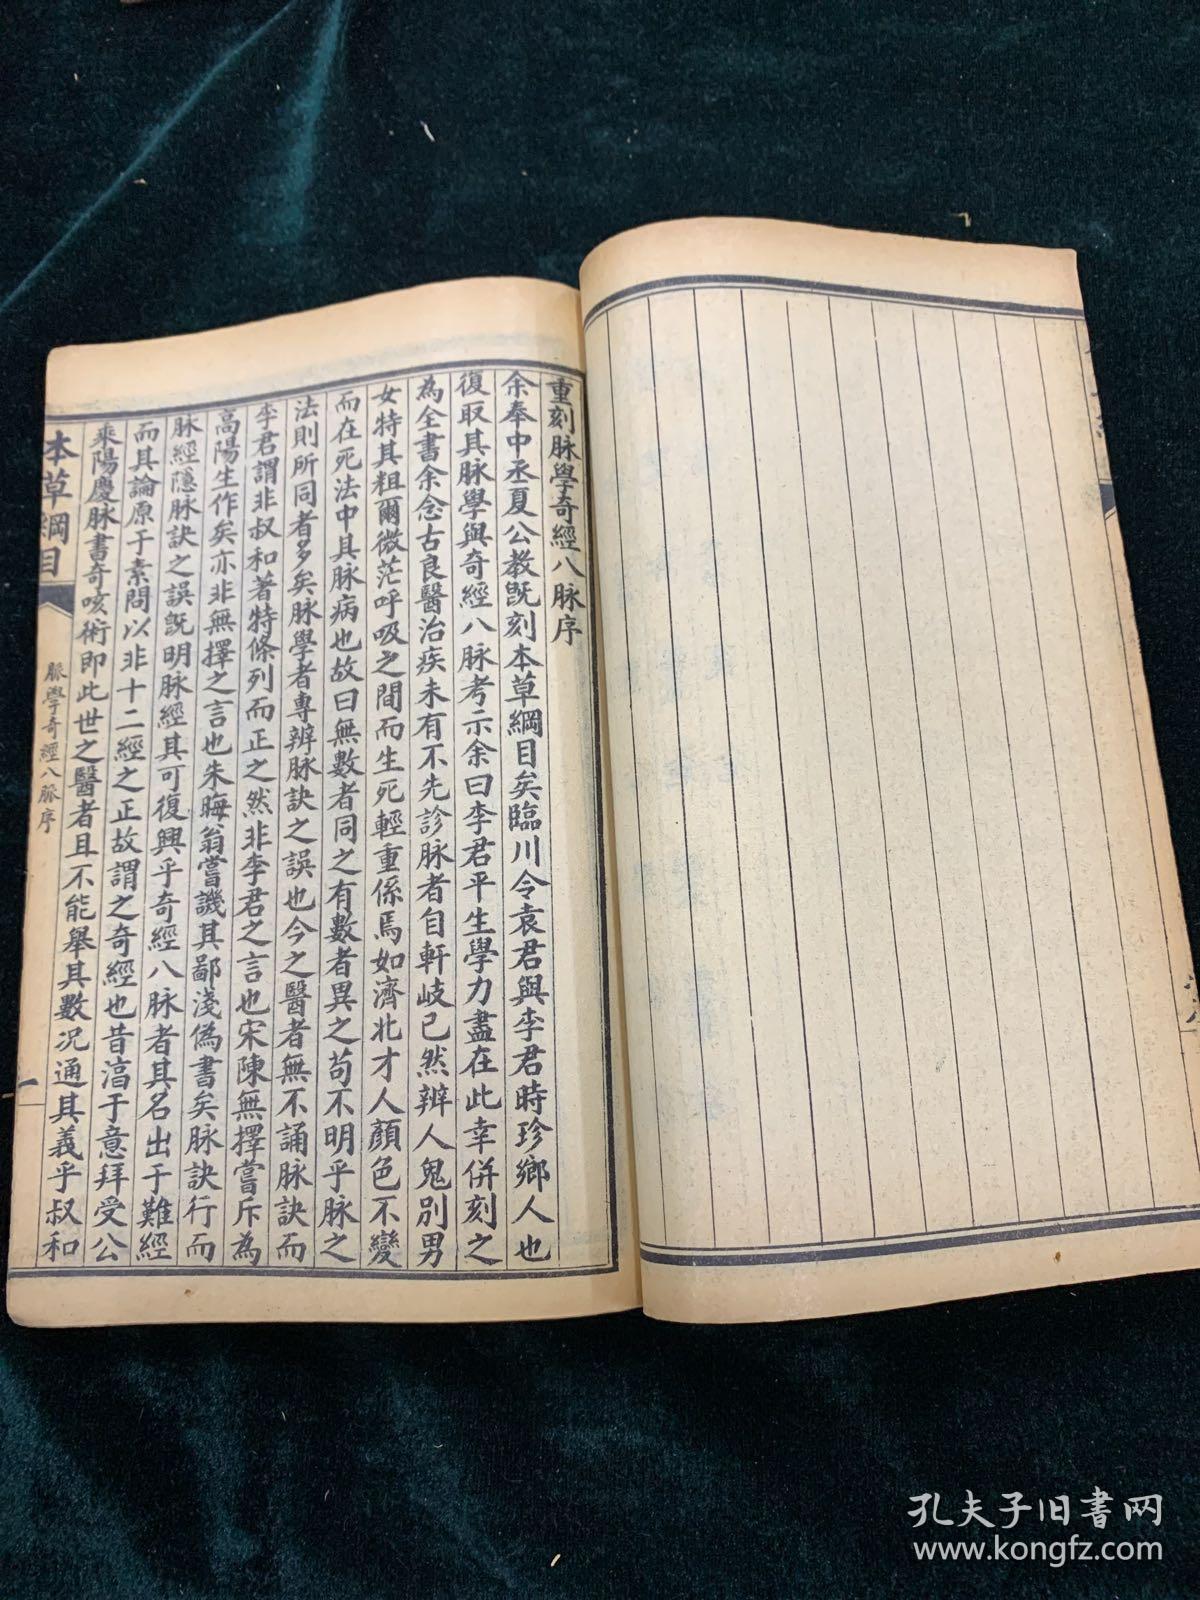 重刻脉學奇經八脉序
余奉中丞夏公教既刻本草綱目矣臨川令袁君與李君時珍鄉人也
復取其脉學與奇經八脉考示余曰李君平生學力盡在此幸併刻之
為全書余念古良醫治疾未有不先診脉者自軒岐已然辨人鬼別男
女特其粗爾微茫呼吸之間而生死輕重係焉如濟北才人顏色不變
而在死法中其脉病也故曰無數者同之有數者異之苟不明乎脉之
法則所同者多矣脉學者專辨脉訣之誤也今之醫者無不誦脉訣而
李君謂非叔和著特條列而正之然非李君之言也宋陳無擇嘗斥為
高陽生作矣亦非無擇之言也朱晦翁嘗譏其鄙淺偽書矣脉訣行而
脉經隱脉訣之誤既明脉經其可復興乎奇經八脉者其名出于難經
而其論原于素問以非十二經之正故謂之奇經也昔淳于意拜受公
乘陽慶脉書奇咳術即此世之醫者且不能舉其數况通其義乎叔和
本草綱目
脈學奇經八脈序
一
孔夫子旧書网
www.kongfz.com